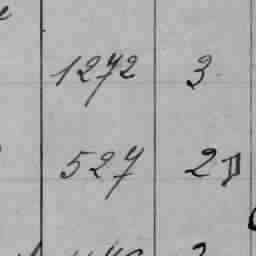 1272 3
527 2